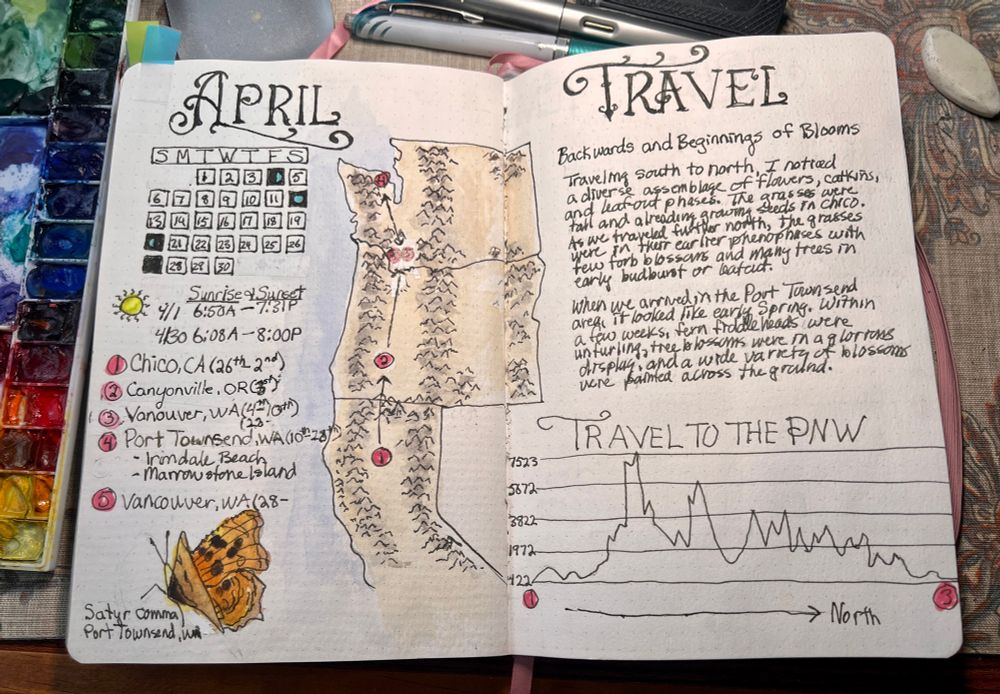 APRIL
S M T W T F S
1 2 3 5
6 7 8 9 10 11
13 14 15 16 17 18 19
21 22 23 24 25 26
28 29 30
Sunrise & Sunset
4/1 6:50A — 7:31P
4/30 6:08A — 8:00P
1 Chico, CA (26th-2nd)
2 Canyonville, OR
3 Vanouver, WA (4th-10th)
(28-
4 Port Townsend, WA (10th-28th)
- Irondale Beach
- Marrowstone Island
5 Vancouver, WA (28-
Satyr Comma
Port Townsend, WA
4
2
1
TRAVEL
Backwards and Beginnings of Blooms
Traveling south to north, I noticed
a diverse assemblage of flowers, catkins,
and leafout phases. The grasses were
tall and already growing seeds in Chico.
As we traveled further north, the grasses
were in their earlier phenophases with
few forb blossoms and many trees in
early budburst or leafout.
When we arrived in the Port Townsend
area, it looked like early Spring. Within
a few weeks, fern fiddleheads were
unfurling, tree blossoms were in a glorious
display, and a wide variety of blossoms
were painted across the ground.
TRAVEL TO THE PNW
7523
5672
3822
1972
122
1
North
3